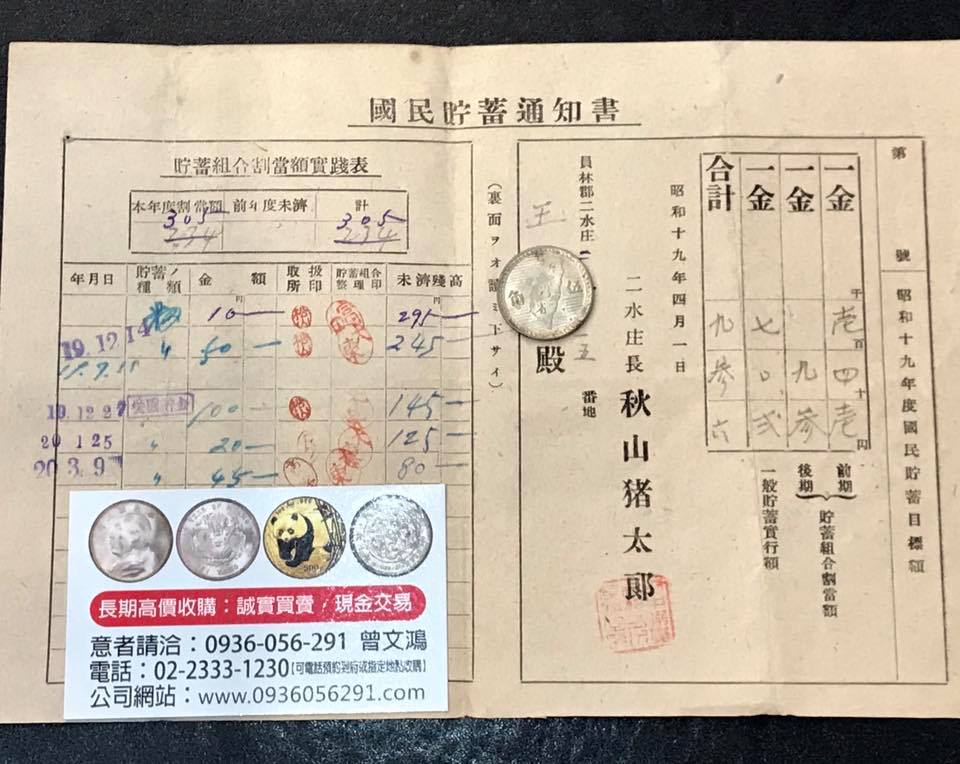 國民貯蓄通知書
第
號
昭和十九年度國民貯蓄目標額
一金
壱四壱
千百十円
前期
一金
九参
後期
貯蓄組合割當額
一金
七〇弐
一般貯蓄實行額
合計
九参六
昭和十九年四月一日
二水庄長 秋山猪太郞
員林郡二水庄
五
番地
王
殿
(裏面ヲオ讀ミ下サイ)
貯蓄組合割當額實踐表
本年度割當額 前年度未濟 計
305 305
234 234
年月日 貯蓄ノ種類 金額 取扱所印 貯蓄組合整理印 未濟殘高
円 円
10 295
19.12.14 〃 50 245
19.12.27 100 145
20 1 25 〃 20 125
20 3. 9 〃 45 80
伍
角
長期高價收購:誠實買賣/現金交易
意者請洽:0936-056-291 曾文鴻
電話:02-2333-1230【可電話預約到府或指定地點收購】
公司網站:www.0936056291.com